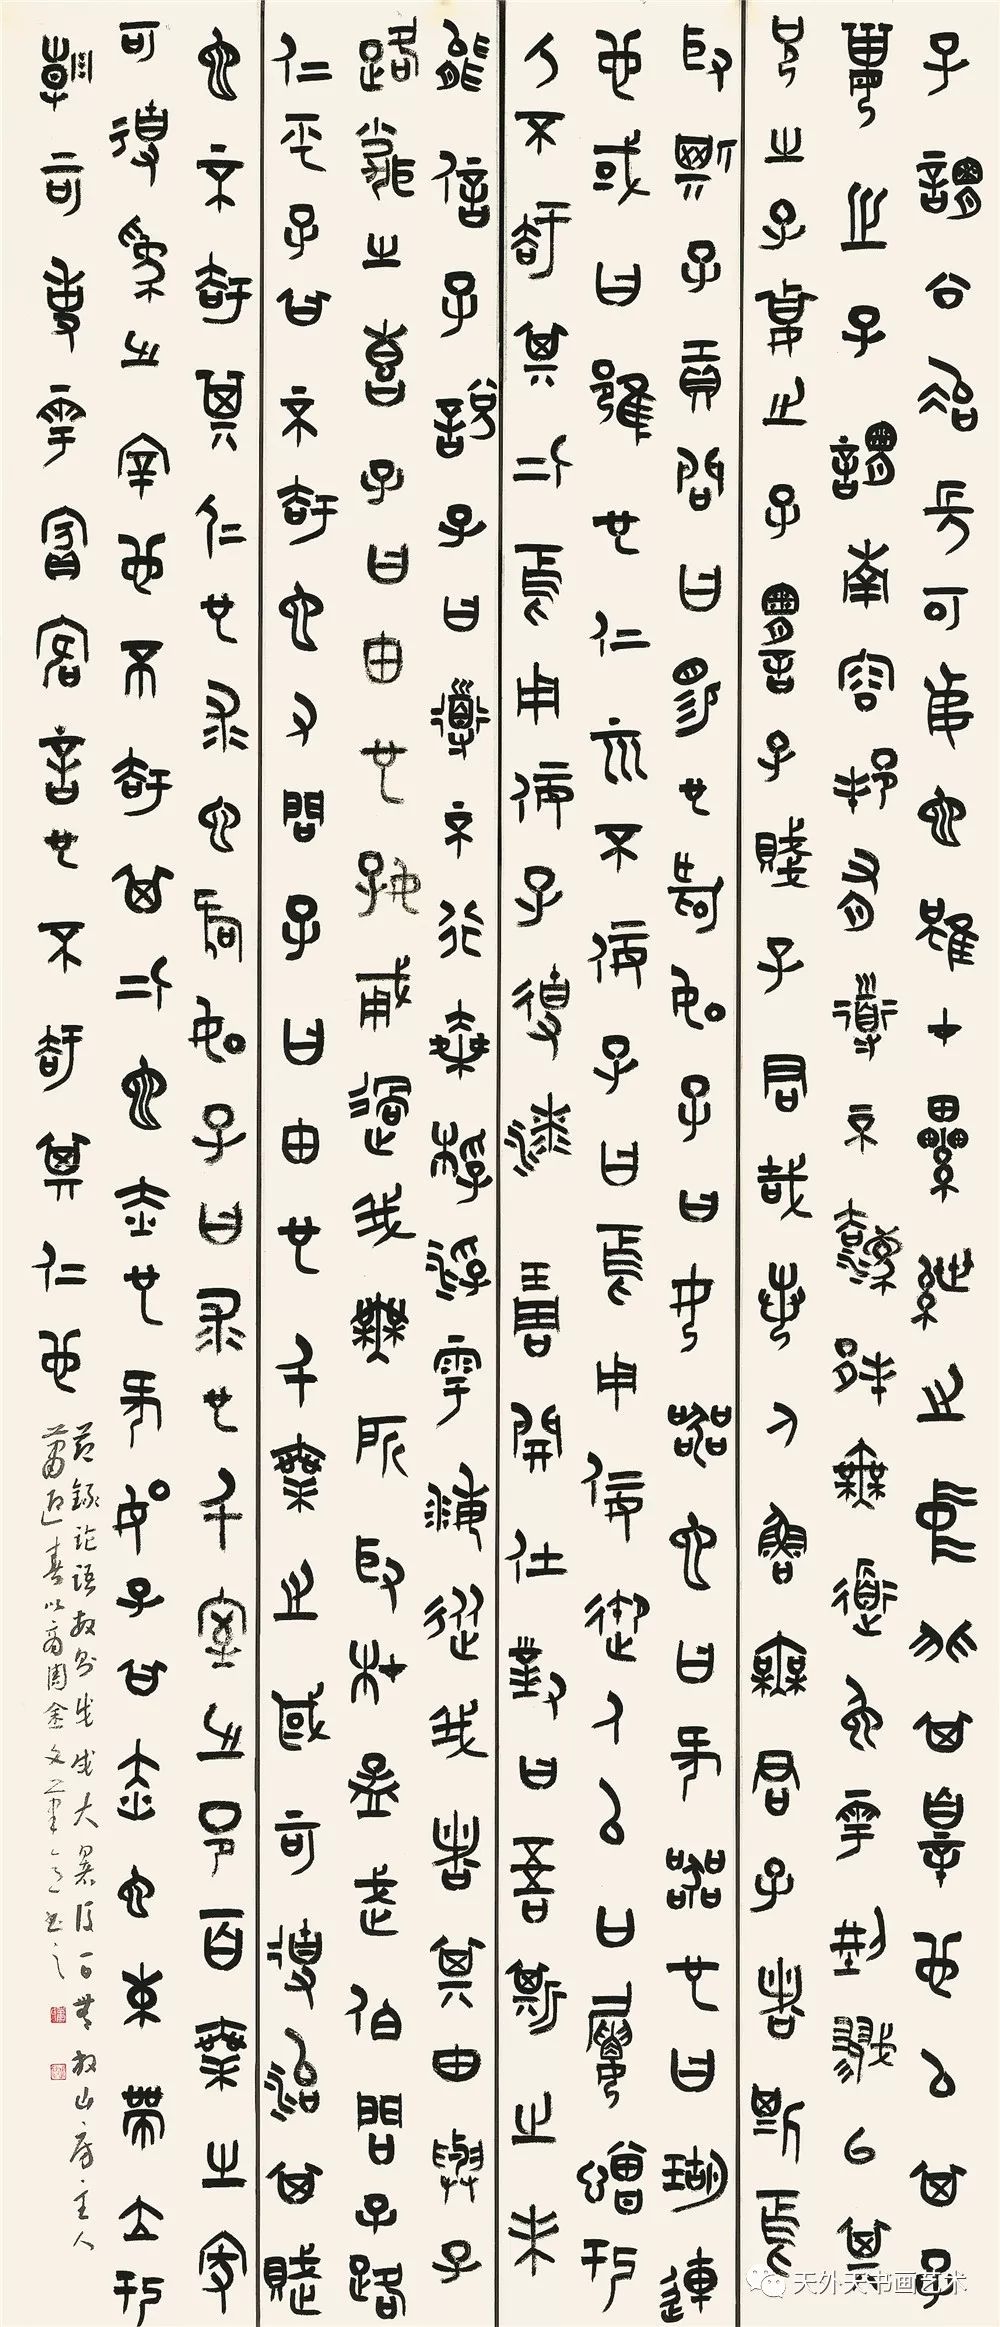 子謂公冶長可妻也雖在縲絏之中非其罪也以其子
妻之子謂南容邦有道不廢邦無道免於刑戮以其
兄之子妻之子謂子賤子君哉若人魯無君子者斯焉
取斯子貢問曰賜也何如子曰女器也曰何器也曰瑚連
也或曰雍也仁而不佞子曰焉用佞禦人以口屢憎於
人不知其仁焉用佞子使漆彫開仕對曰吾斯之未
能信子說子曰道不行乘桴浮于海從我者其由與子
路聞之喜子曰由也好勇過我無所取材孟武伯問子路
仁乎子曰不知也又問子曰由也千乘之國可使治其賦
也不知其仁也求也何如子曰求也千室之邑百乘之家
可使為之宰也不知其仁也赤也何如子曰赤也束帶立於
朝可使與賓客言也不知其仁也
節錄論語數則戊戌大暑後一日山房主人
蕭迎春以商周金文筆意書之
天外天书画艺术